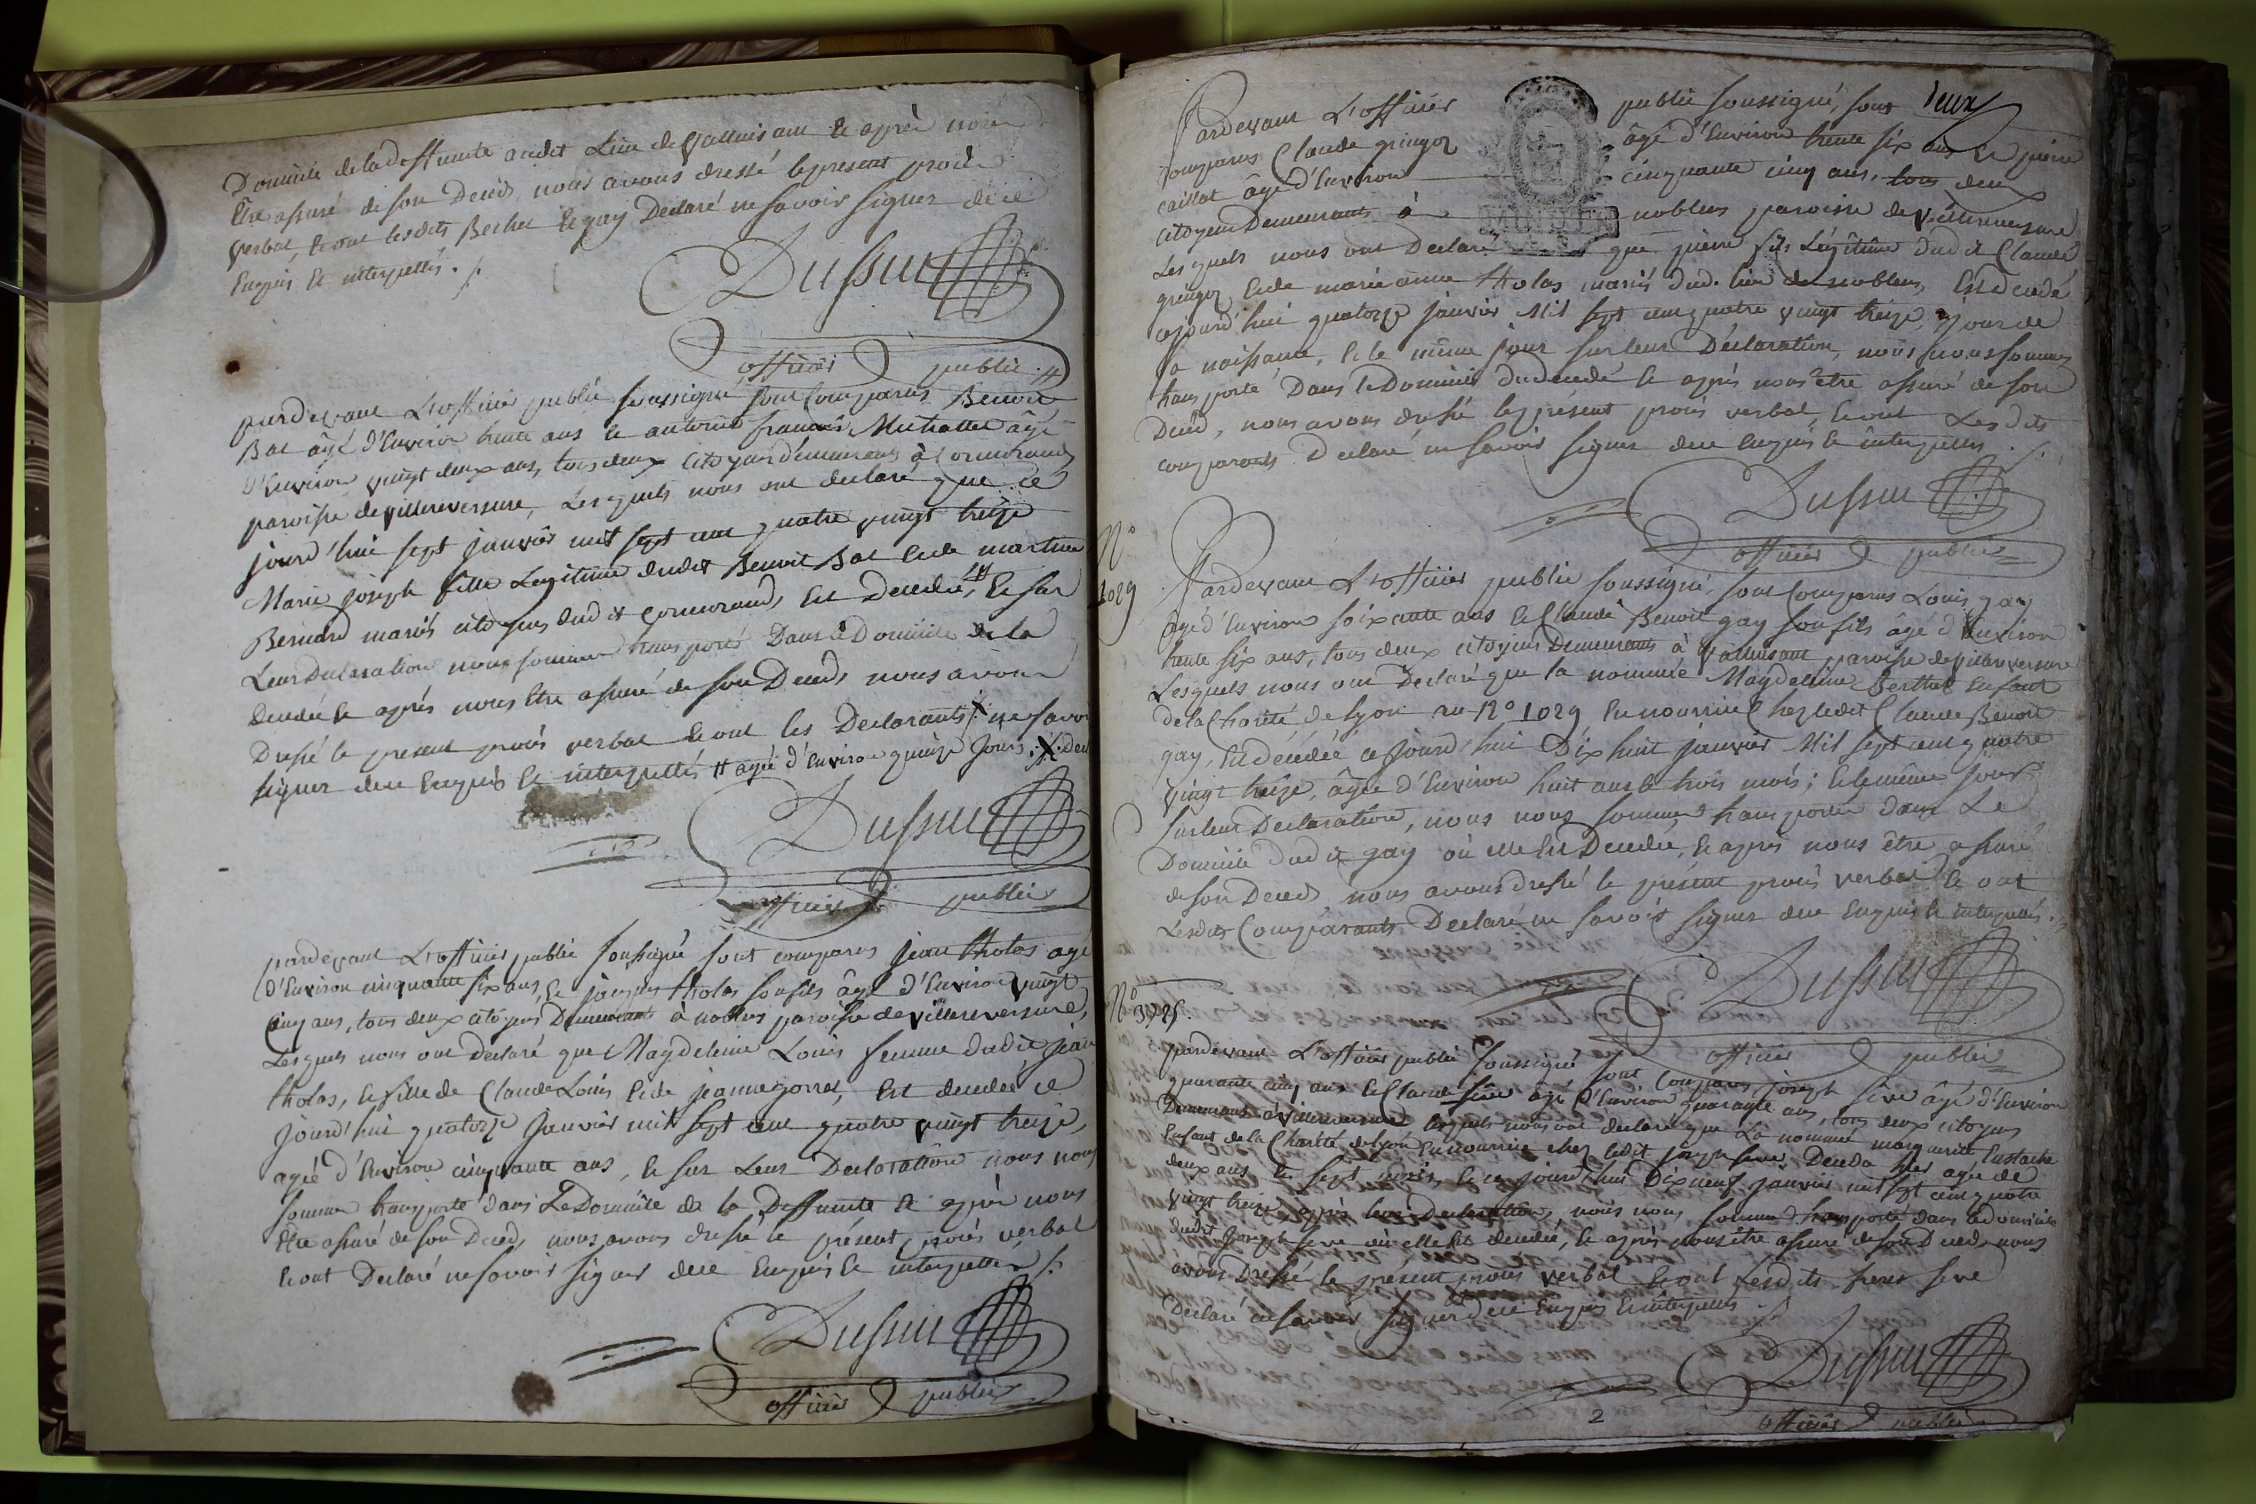 Domicile de la deffunte audit Lieu de Valluisant Et après nous
Etre assuré de son Décéd, nous avons dressé le present procés
verbal, Et ont lesdits Berthet Et gay Declaré ne savoir signer de ce
Enquis Et interpellés ./.
Dussuc
officier public
pardevant L'officier public soussigné sont Comparus Benoit
Bal âgé d'Environ trente ans Et antoine françois Michallet âgé
d'Environ vingt deux ans, tous deux Citoyens demeurants à Cormorand
paroisse de villereversure, Lesquels nous ont declaré que ce
jourd'hui sept janvier mil sept cent quatre vingt treize
Marie joseph fille Legitime dudit Benoit Bal Et de martine
Bernard mariés citoyens dudit Cormorand, Est Decedée, # Et sur
Leur Declaration nous sommes transporté Dans le Domicile de la
Decedée Et après nous Etre assuré de son Deced, nous avons
Dressé le present procés verbal Et ont les Declarants X ne savoir
signer dece Enquis Et interpellés # agée d'Environ quinze jours ./. X decl
Dussuc
officier public
pardevant L'officier public soussigné sont comparus jean tholas agé
d'Environ cinquante six ans, Et jacques tholas son fils âgé d'Environ vingt
Cinq ans, tous deux citoyens Demeurants à noblens paroisse de villereversure,
Lesquels nous ont declaré que Magdeleine Louis femme dudit jean
tholas, Et fille de Claude Louis Et de jeanne gorraz, Est decedée ce
jourd'hui quatorze janvier mil sept cent quatre vingt treize,
agée d'Environ cinquante ans, Et sur Leur Declaration nous nous
sommes transporté dans Le Domicile de la Deffunte Et après nous
Etre assuré de son Deced, nous avons dressé le présent procés verbal
Et ont Declaré ne savoir signer dece Enquis Et interpellés ./.
Dussuc
officier public
deux
Pardevant L'officier public soussigné, sont
comparus Claude gringoz âgé d'Environ trente six ans Et pierre
caillat âgé d'Environ cinquante cinq ans, tous deux
citoyens Demeurants à noblens paroisse de villereversure
Lesquels nous ont Declaré que pierre fils Légitime dudit Claude
gringoz Et de marie anne tholas mariés dud. lieu de noblens, Est decedé
aujourd'hui quatorze janvier Mil sept cent quatre vingt treize, jour de
sa naissance, Et le même jour sur leur Déclaration, nous nous sommes
transporté Dans le Domicile du decedé Et après nous être assuré de son
Deced, nous avons dressé le présent procés verbal, Et ont Lesdits
comparants Declaré ne savoir signer dece Enquis Et interpellés ./.
Dussuc
officier public
N°
1029
Pardevant L'officier public soussigné, sont Comparus Louis gay
âgé d'Environ soixante ans Et Claude Benoit gay son fils âgé d'Environ
trente six ans, tous deux citoyens Demeurants à Valluisant paroisse de villereversure
Lesquels nous ont Declaré que la nommée Magdeleine Berthet Enfant
de la Charité de Lyon au N° 1029 En nourrice Chez ledit Claude Benoit
gay, Est décédée ce jourd'hui Dix huit janvier Mil sept cent quatre
vingt treize, âgée d'Environ huit ans Et trois mois; Et le même jour
sur leur Declaration, nous nous sommes transporté dans Le
Domicile dudit gay où elle Est Decedée, Et après nous être assuré
de son Deced nous avons dressé le présent procés verbal Et ont
Lesdits Comparants Declaré ne savoir signer dece Enquis Et interpellés ./.
Dussuc
officier public
N°
pardevant L'officier public soussigné sont Comparus joseph seve âgé d'Environ
quarante cinq ans Et Claude seve âgé d'Environ quarante ans, tous deux citoyens
Demeurants à villereversure lesquels nous ont declaré que La nommée marguerite Eustache
Enfant de la Charité de Lyon En nourrice chez ledit joseph seve Deceda hier agée de
deux ans Et sept mois, Et ce jourd'hui Dix neuf janvier mil sept cent quatre
vingt treize après leur Declaration, nous nous sommes transporté dans le domicile
dudit joseph seve où elle Est decedée, Et après nous être assuré de son Deced, nous
avons Dressé le présent procés verbal Et ont Lesdits freres seve
Declaré ne savoir signer dece Enquis Et interpellés ./.
Dussuc
officier public
2